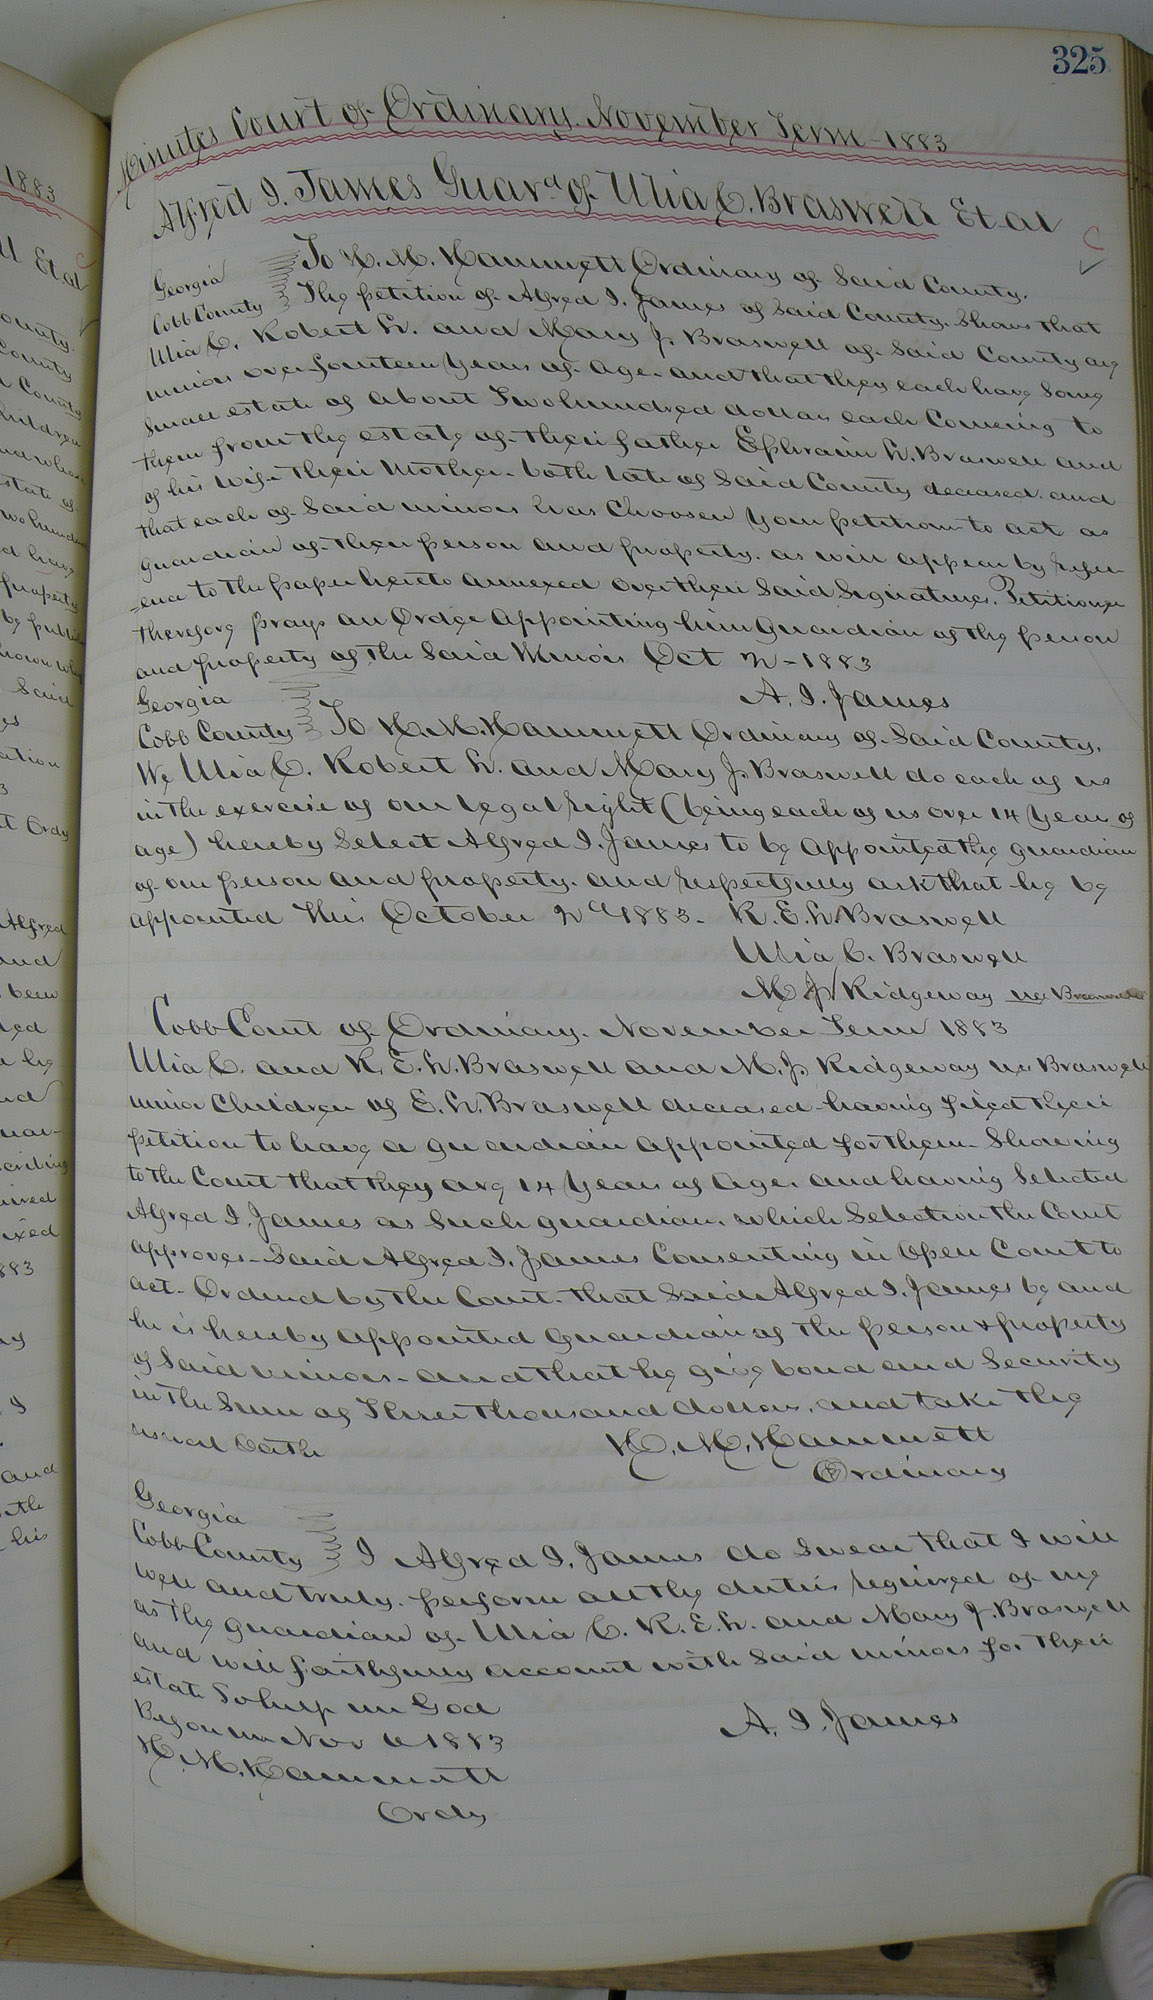 325
Minutes Court of Ordinary. November Term - 1883
Alfred I. James Guard of Ulia C. Braswell Et al
Georgia
Cobb County
To H. M. Hammett Ordinary of Said County.
The petition of Alfred I. James of Said County. Shows that
Ulia C. Robert L. and Mary J. Braswell of Said County are
minors over fourteen Years of Age. and that they each have Some
Small estate of about Two hundred dollars each Comeing to
them from the estate of their father Ephraim L. Braswell and
of his wife their Mother. both late of Said County deceased. and
that each of Said minors has Choosen Your petitioner to act as
guardian of their person and property. as will appear by refer-
-ence to the paper hereto annexed over their Said Signatures. Petitioner
therefore prays an Order Appointing him Guardian of the person
and property of the Said Minors Oct 2 - 1883
A. I. James
Georgia
Cobb County To H. M. Hammett Ordinary of Said County.
We Ulia C. Robert L. and Mary J. Braswell do each of us
in the exercise of our legal right (being each of us over 14 Years of
age) hereby Select Alfred I. James to be Appointed the guardian
of our person and property. and respectfully ask that he be
appointed this October 2d 1883. R. E. L. Braswell
Ulia C. Braswell
M J Ridgeway nee Braswell
Cobb Court of Ordinary. November Term 1883
Ulia C. and R. E. L. Braswell and M. J. Ridgeway nee Braswell
minor Children of E. L. Braswell deceased having filed their
petition to have a guardian appointed for them. Showing
to the Court that they are 14 Years of Age. and having Selected
Alfred I. James as Such guardian. which Selection the Court
approves - Said Alfred I. James Consenting in Open Court to
act. Ordered by the Court. that Said Alfred I. James be and
he is hereby appointed Guardian of the person & property
of Said minors. and that he give bond and Security
in the Sum of Three thousand dollars, and take the
usual Oath
H. M. Hammett
Ordinary
Georgia
Cobb County I Alfred I. James do Swear that I will
well and truly. perform all the duties required of me
as the guardian of Ulia C. R. E. L. and Mary J. Braswell
and will faithfully account with Said minors for their
estate So help me God
Before me Nov 6 1883
A. I. James
H. M. Hammett
Ordy